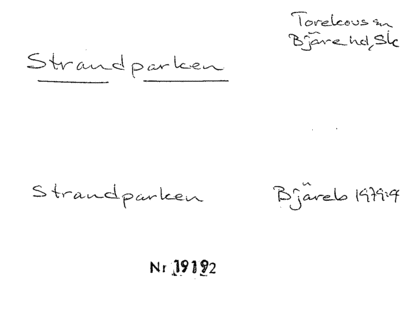 Torekovs sn
Bjäre hd, Sk
Strandparken
Strandparken Bjäreb 1979:9
Nr 19192